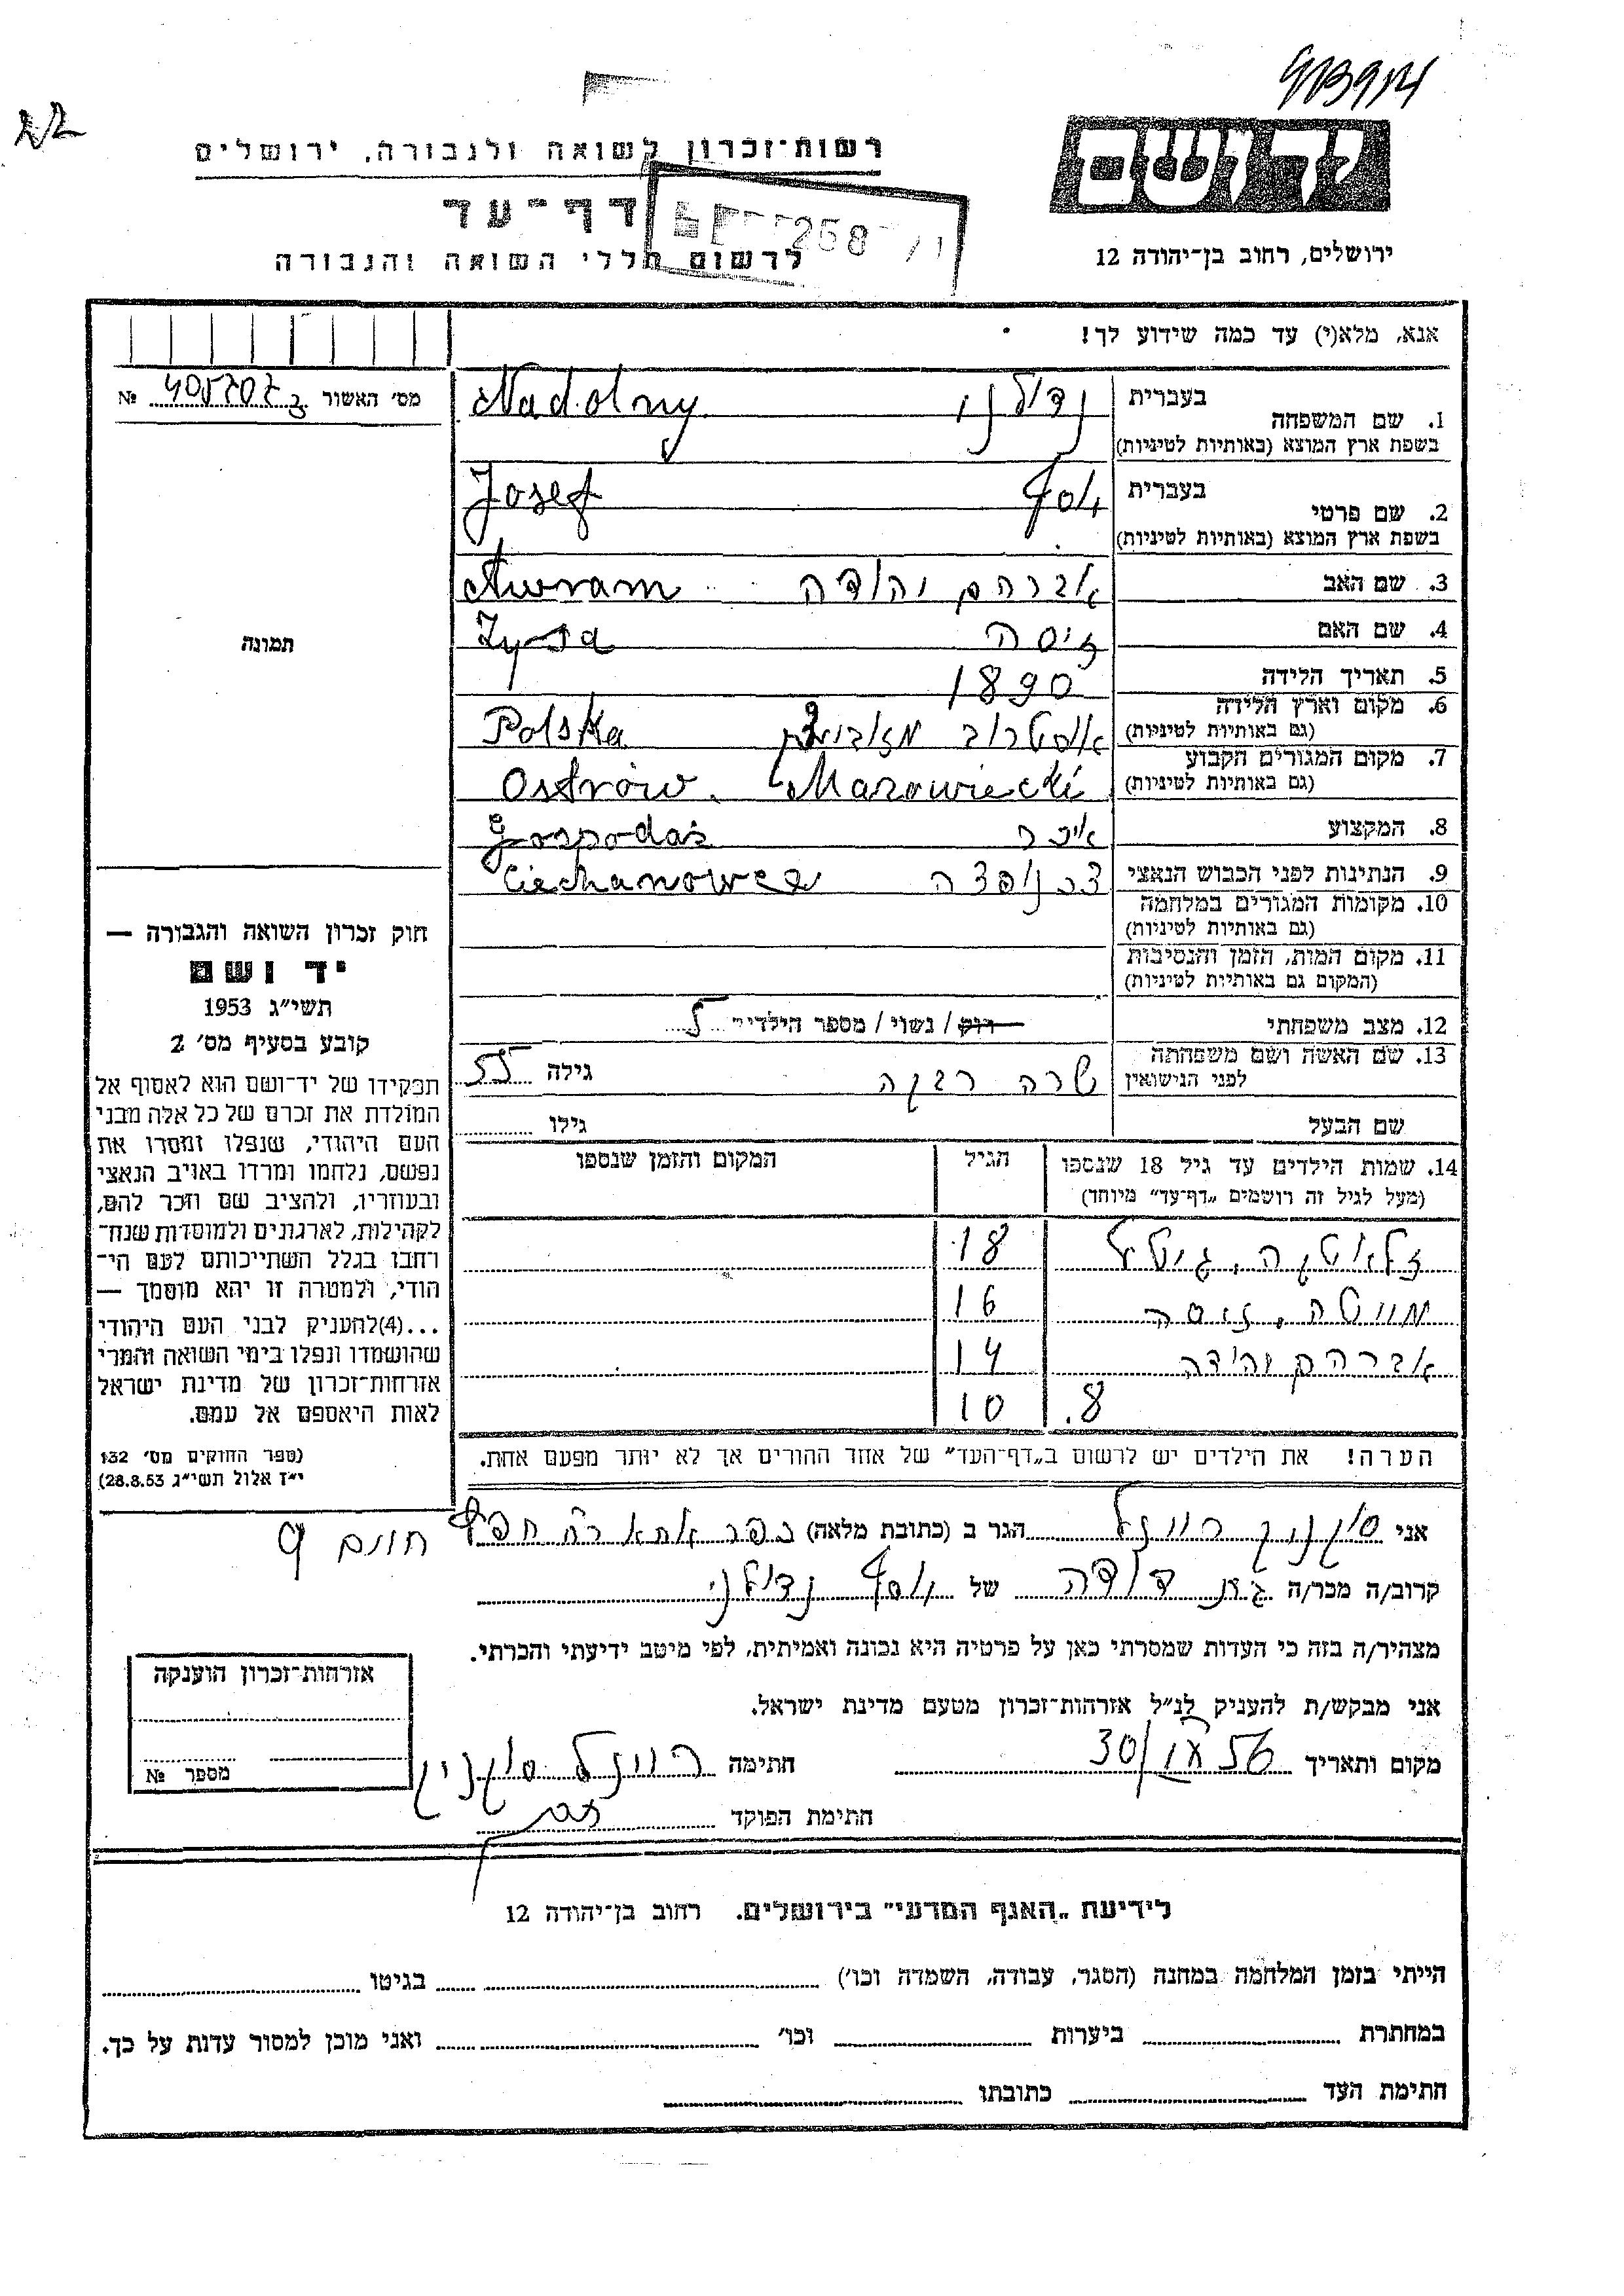 רשות־זכרון לשואה ולגבורה, ירושלים
דף־עד
לרשום חללי השואה והגבורה
258
יד ושם
ירושלים, רחוב בן־יהודה 12
אנא, מלא(י) עד כמה שידוע לך!
מס׳ האשור №
1. שם המשפחה בעברית נדולני Nadolny
בשפת ארץ המוצא (באותיות לטיניות)
2. שם פרטי בעברית יוסף Josef
בשפת ארץ המוצא (באותיות לטיניות)
3. שם האב אברהם יהודה Awram
4. שם האם זיסה Zysa
5. תאריך הלידה 1890
6. מקום וארץ הלידה
(גם באותיות לטיניות) אוסטרוב Polska
7. מקום המגורים הקבוע
(גם באותיות לטיניות) Ostrów Mazowiecki
8. המקצוע איכר Gospodaż
9. הנתינות לפני הכבוש הנאצי Ciechanowca
10. מקומות המגורים במלחמה
(גם באותיות לטיניות)
11. מקום המות, הזמן והנסיבות
(המקום גם באותיות לטיניות)
12. מצב משפחתי רווק / נשוי / מספר הילדים 5
13. שם האשה ושם משפחתה
לפני הנישואין שרה רבקה גילה 55
שם הבעל גילו
14. שמות הילדים עד גיל 18 שנספו הגיל המקום והזמן שנספו
(מעל לגיל זה רושמים „דף־עד״ מיוחד)
זלאטקה, גיטל 18
זיסה 16
אברהם יהודה 14
8. 10
הערה! את הילדים יש לרשום ב„דף־העד״ של אחד ההורים אך לא יותר מפעם אחת.
תמונה
חוק זכרון השואה והגבורה —
יד ושם
תשי״ג 1953
קובע בסעיף מס׳ 2
תפקידו של יד־ושם הוא לאסוף אל
המולדת את זכרם של כל אלה מבני
העם היהודי, שנפלו ומסרו את
נפשם, נלחמו ומרדו באויב הנאצי
ובעוזריו, ולהציב שם וזכר להם,
לקהילות, לארגונים ולמוסדות שנח־
רחבו בגלל השתייכותם לעם הי־
הודי, ולמטרה זו יהא מוסמך —
...(4)להעניק לבני העם היהודי
שהושמדו ונפלו בימי השואה והמרי
אזרחות־זכרון של מדינת ישראל
לאות היאספם אל עמם.
(ספר החוקים מס׳ 132
י״ז אלול תשי״ג 28.8.53)
אני הגר ב (כתובת מלאה) כפר אתא
קרוב/ה מכר/ה בן דודה של יוסף נדולני
מצהיר/ה בזה כי העדות שמסרתי כאן על פרטיה היא נכונה ואמיתית, לפי מיטב ידיעתי והכרתי.
אני מבקש/ת להעניק לנ״ל אזרחות־זכרון מטעם מדינת ישראל.
מקום ותאריך 30 חתימה
חתימת הפוקד
אזרחות־זכרון הוענקה
מספר №
לידיעת „האגף המדעי״ בירושלים. רחוב בן־יהודה 12
הייתי בזמן המלחמה במחנה (הסגר, עבודה, השמדה וכו׳) בגיטו
במחתרת ביערות וכו׳ ואני מוכן למסור עדות על כך.
חתימת העד כתובתו